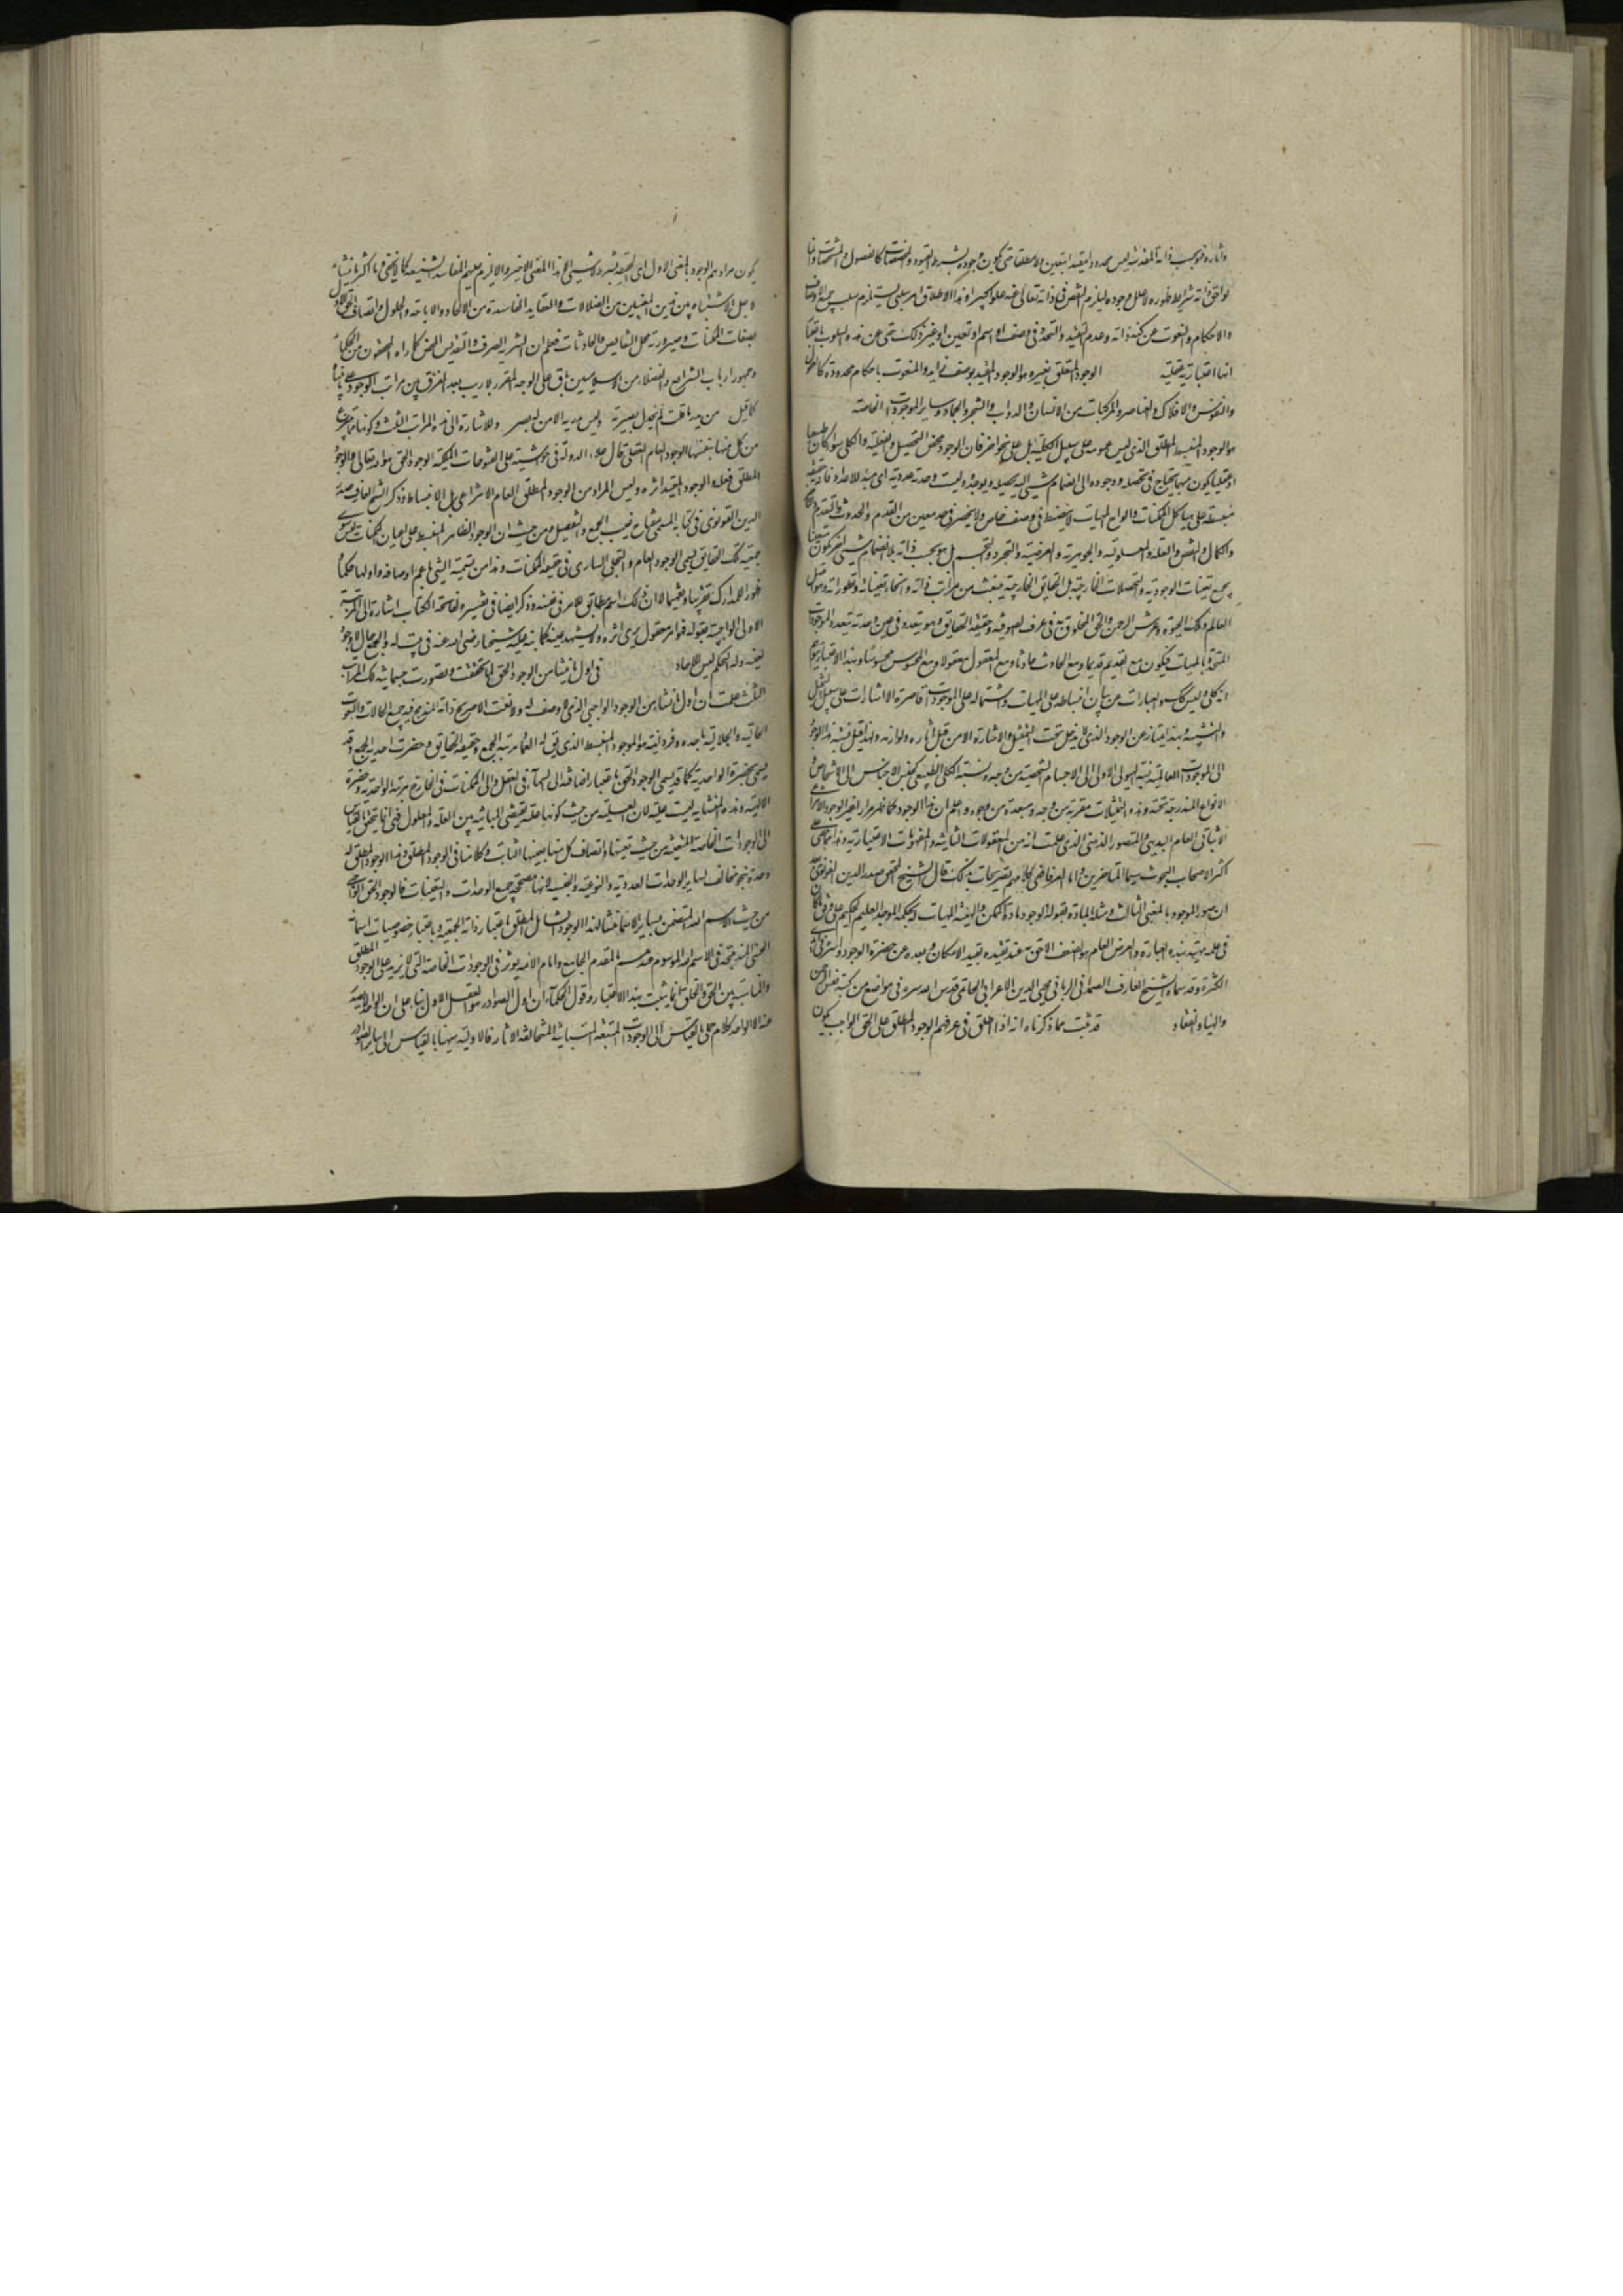 وآثاره فهو بحسب ذاته المقدسة ليس محدودا مقيدا بتعين ولا مطلقا حتى يكون وجوده بشرط القيود والمخصصات كالفصول والمشخصات وانما
لواحق ذاته شرايط ظهوره لا علل وجوده ليلزم النقص في ذاته تعالى عنه علوا كبيرا وهذا الاطلاق امر سلبي يستلزم سلب جميع الاوصاف
والاحكام والنعوت عن كنه ذاته وعدم التقيد والتحدد في وصف او اسم او تعين او غير ذلك حتى عن هذه السلوب باعتبار
انها اعتبارية عقلية الوجود المتعلق بغيره هو الوجود المقيد بوصف زايد والمنعوت باحكام محدودة كالعقول
والنفوس والافلاك والعناصر والمركبات من الانسان والدواب والشجر والجماد وساير الموجودات الخاصة
هو الوجود المنبسط المطلق الذي ليس عمومه على سبيل الكلية بل على نحو اخر فان الوجود محض التحصل والفعلية والكلي سواء كان طبيعيا
او عقليا يكون مبهما يحتاج في تحصله ووجوده الى انضمام شيء اليه يحصله ويوجده وليست وحدته عددية اي مبدء للاعداد فانه حقيقة
منبسطة على هياكل الممكنات والواح المهيات لا ينضبط في وصف خاص ولا ينحصر في حد معين من القدم والحدوث والتقدم والتأخر
والكمال والنقص والعلية والمعلولية والجوهرية والعرضية والتجرد والتجسم بل هو بحسب ذاته بلا انضمام شيء اخر يكون متعينا
بجميع التعينات الوجودية والتحصلات الخارجية بل الحقايق الخارجية منبعث من مراتب ذاته وانحاء تعيناته وتطوراته وهو اصل
العالم وفلك الحيوة وعرش الرحمن والحق المخلوق به في عرف الصوفية وحقيقة الحقايق وهو يتعدد في عين وحدته بتعدد الموجودات
المتحدة بالمهيات فيكون مع القديم قديما ومع الحادث حادثا ومع المعقول معقولا ومع المحسوس محسوسا وبهذا الاعتبار يتوهم
انه كلي وليس كذلك والعبارات عن بيان انبساطه على المهيات واشتماله على الموجودات قاصرة الا اشارات على سبيل التمثيل
والتشبيه وبهذا يمتاز عن الوجود الذي لا يدخل تحت التمثيل والاشارة الا من قبل آثاره ولوازمه ولهذا قيل نسبة هذا الوجود
الى الموجودات العالمية نسبة الهيولى الاولى الى الاجسام الشخصية من وجه ونسبة الكلي الطبيعي كجنس الاجناس الى الاشخاص و
الانواع المندرجة تحته وهذه التمثيلات مقربة من وجه ومبعدة من وجوه واعلم ان هذا الوجود كما ظهر مرارا غير الوجود الانتزاعي
الاثباتي العام البديهي والمتصور الذهني الذي علمت انه من المعقولات الثانية والمفهومات الاعتبارية وهذا مما خفي على
اكثر اصحاب البحوث سيما المتاخرين واما العرفا ففي كلامهم تصريحات بذلك قال الشيخ المحقق صدر الدين القونوي بعد
ان صور الوجود بالمعنى الثالث ومثله بالمادة بقوله الوجود مادة الممكن والهيئة المهيات له بحكمة الموجد العليم الحكيم على وفق ما كان
في علمه مهيئة بهذه العبارة والعرض العام هو الضعف اللاحق به عند تقيده بقيد الامكان وبعده عن حضرة الوجود واسره في ايدي
الكثرة وقد سماه الشيخ العارف الصمداني الرباني محيي الدين الاعرابي الحاتمي قدس الله سره في مواضع من كتبه نفس الرحمن
والهباء والعنقاء قد ثبت مما ذكرناه انه اذا اطلق في عرفهم الوجود المطلق على الحق الواجب يكون
يكون مرادهم الوجود بالمعنى الاول اى الحقيقة بشرط لا شيء لا هذا المعنى الاخير والا يلزم عليهم المفاسد الشنيعة كما لا يخفى وما اكثر ما ينشاء
لاجل الاشتباه بين هذين المعنيين من الضلالات والعقايد الفاسدة من الالحاد والاباحة والحلول واتصاف الحق الاول
بصفات الممكنات وصيرورته محل النقايص والحادثات فعلم ان التنزيه الصرف والتقديس المحض كما راه المحققون من الحكماء
وجمهور ارباب الشرايع والفضلاء من الاسلاميين باق على الوجه المقرر بلا ريب بعد الفرق بين مراتب الوجود على ما بيناه
كما قيل من يدر ما قلت لم تخذل بصيرته وليس يدريه الا من له بصر وللاشارة الى هذه المراتب الثلث وكونها مما ينتزع
من كل منها بنفسها الوجود العام العقلي قال علاء الدولة في حواشيه على الفتوحات المكية الوجود الحق هو الله تعالى والوجود
المطلق فعله والوجود المقيد اثره وليس المراد من الوجود المطلق العام الانتزاعي بل الانبساط وذكر الشيخ العارف صدر
الدين القونوي في كتابه المسمى بمفتاح غيب الجمع والتفصيل ومن حيث ان الوجود الظاهر المنبسط على اعيان المكونات ليس سوى
جمعية تلك الحقايق يسمى الوجود العام والتجلي الساري في حقيقة الممكنات وهذا من تسمية الشيء باعم اوصافه واولها حكما و
ظهورا للمدارك تقريبا وتفهيما لا ان ذلك اسم مطابق للامر في نفسه وذكر ايضا في تفسيره لفاتحة الكتاب اشارة الى المرتبة
الاولى الواجبية بقوله فهو امر معقول يرى اثره ولا يشهد عينه كما نبه عليه شيخنا رضى الله عنه في بيت له والجمع حال لا وجود
لعينه وله التحكم ليس للاحاد في اول ما ينشا من الوجود الحق لما تحققت وتصورت حسبما بينا تلك المراتب
الثلث علمت ان اول ما ينشا من الوجود الواجبي الذي لا وصف له ولا نعت الا صريح ذاته المندمج فيه جميع الحالات والنعوت
الجمالية والجلالية باحديته وفردانيته هو الموجود المنبسط الذي يقال له العماء ومرتبة الجمع وحقيقة الحقايق وحضرت احدية الجمع وقد
يسمى بحضرة الواحدية كما قد يسمى الوجود الحق باعتبار اضافته الى الاسماء في العقل والى الممكنات في الخارج مرتبة الواحدية وحضرة
الالهية وهذه المنشايية ليست علية لان العلية من حيث كونها علة تقتضى المباينة بين العلة والمعلول فهى انما يتحقق بالقياس
الى الوجودات الخاصة المتعينة من حيث تعينها واتصاف كل منها بعينها الثابت وكلامنا في الوجود المطلق وهذا الوجود المطلق له
وحدة بنحو مخالف لساير الوحدات العددية والنوعية والجنسية لانها مصححة جميع الوحدات والتعينات فالوجود الحق الواجبي
من حيث الاسم الله المتضمن لساير الاسماء منشا لهذا الوجود الشامل المطلق باعتبار ذاته الجمعية وباعتبار خصوصيات اسمائه
الحسنى المندمجة في الاسم الله الموسوم عندهم بالمقدم الجامع وامام الائمة يوثر في الوجودات الخاصة التي لا يزيد على الوجود المطلق
والمناسبة بين الحق والخلق انما يثبت بهذا الاعتبار وقول الحكماء ان اول الصوادر هو العقل الاول بناء على ان الواحد لا يصدر
عنه الا الواحد كلام جملي بالقياس الى الموجودات المتعينة المتباينة المتخالفة الاثار فالاولية هيهنا بالقياس الى ساير الصوادر